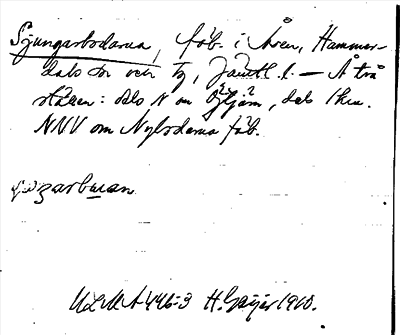 Gjungarbodarna, fäb. i Åren, Hammar-
dals sn och tg, Jämtl. l. — Å två
ställen: dels N om, dels 1 km.
NNV om Nybodarna fäb.
ULMA 446:3 H. Geijer 1910.